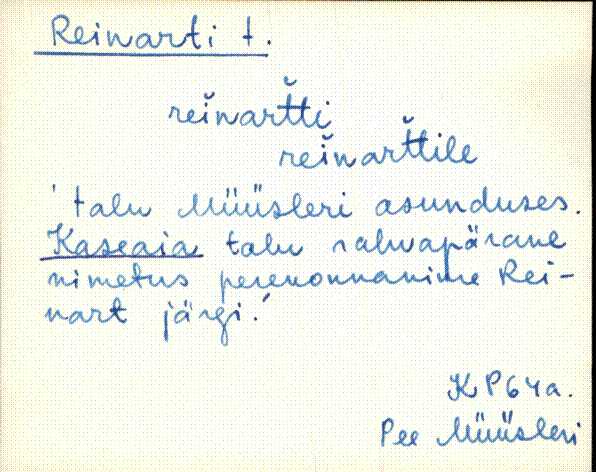 Reinarti t.
reĭnart̆ti
reĭnart̆tile
'talu Müüsleri asunduses.
Kaseaia talu rahvapärane
nimetus perekonnanime Rei-
nart järgi.'
KP64a.
Pee Müüsleri